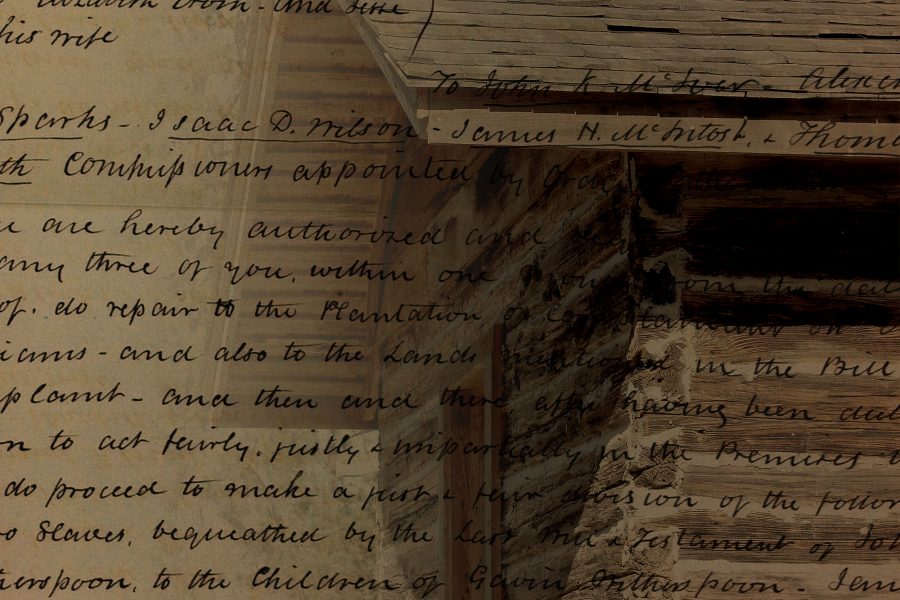 Elizabeth and Jesse
his wife
To John K. McIver - Alexan
Sparks - Isaac D. Wilson - James H. McIntosh, & Thoma
th Commissioners appointed by Orde
u are hereby authorized and
any three of you, within one from the dat
of. do repair to the Plantation
iams - and also to the Lands mentioned in the Bill
plaint - and then and there after having been dul
on to act fairly, justly & impartially in the Premises
do proceed to make a just & fair division of the follow
o Slaves, bequeathed by the Last Will & Testament of Joh
therspoon, to the Children of Gavin Witherspoon - Jam